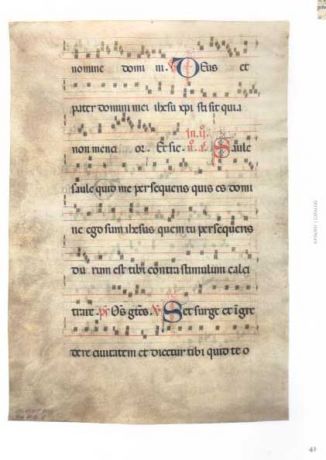 nomine domi ni. Deus et
pater domini mei ihesu xpi scit quia
non menci or. Et sic Saule
saule quid me persequens quis es domi
ne ego sum ihesus quem tu persequens
du rum est tibi contra stimulum calci
trare. Surge et ingre
dere civitatem et dicetur tibi quid te o
41